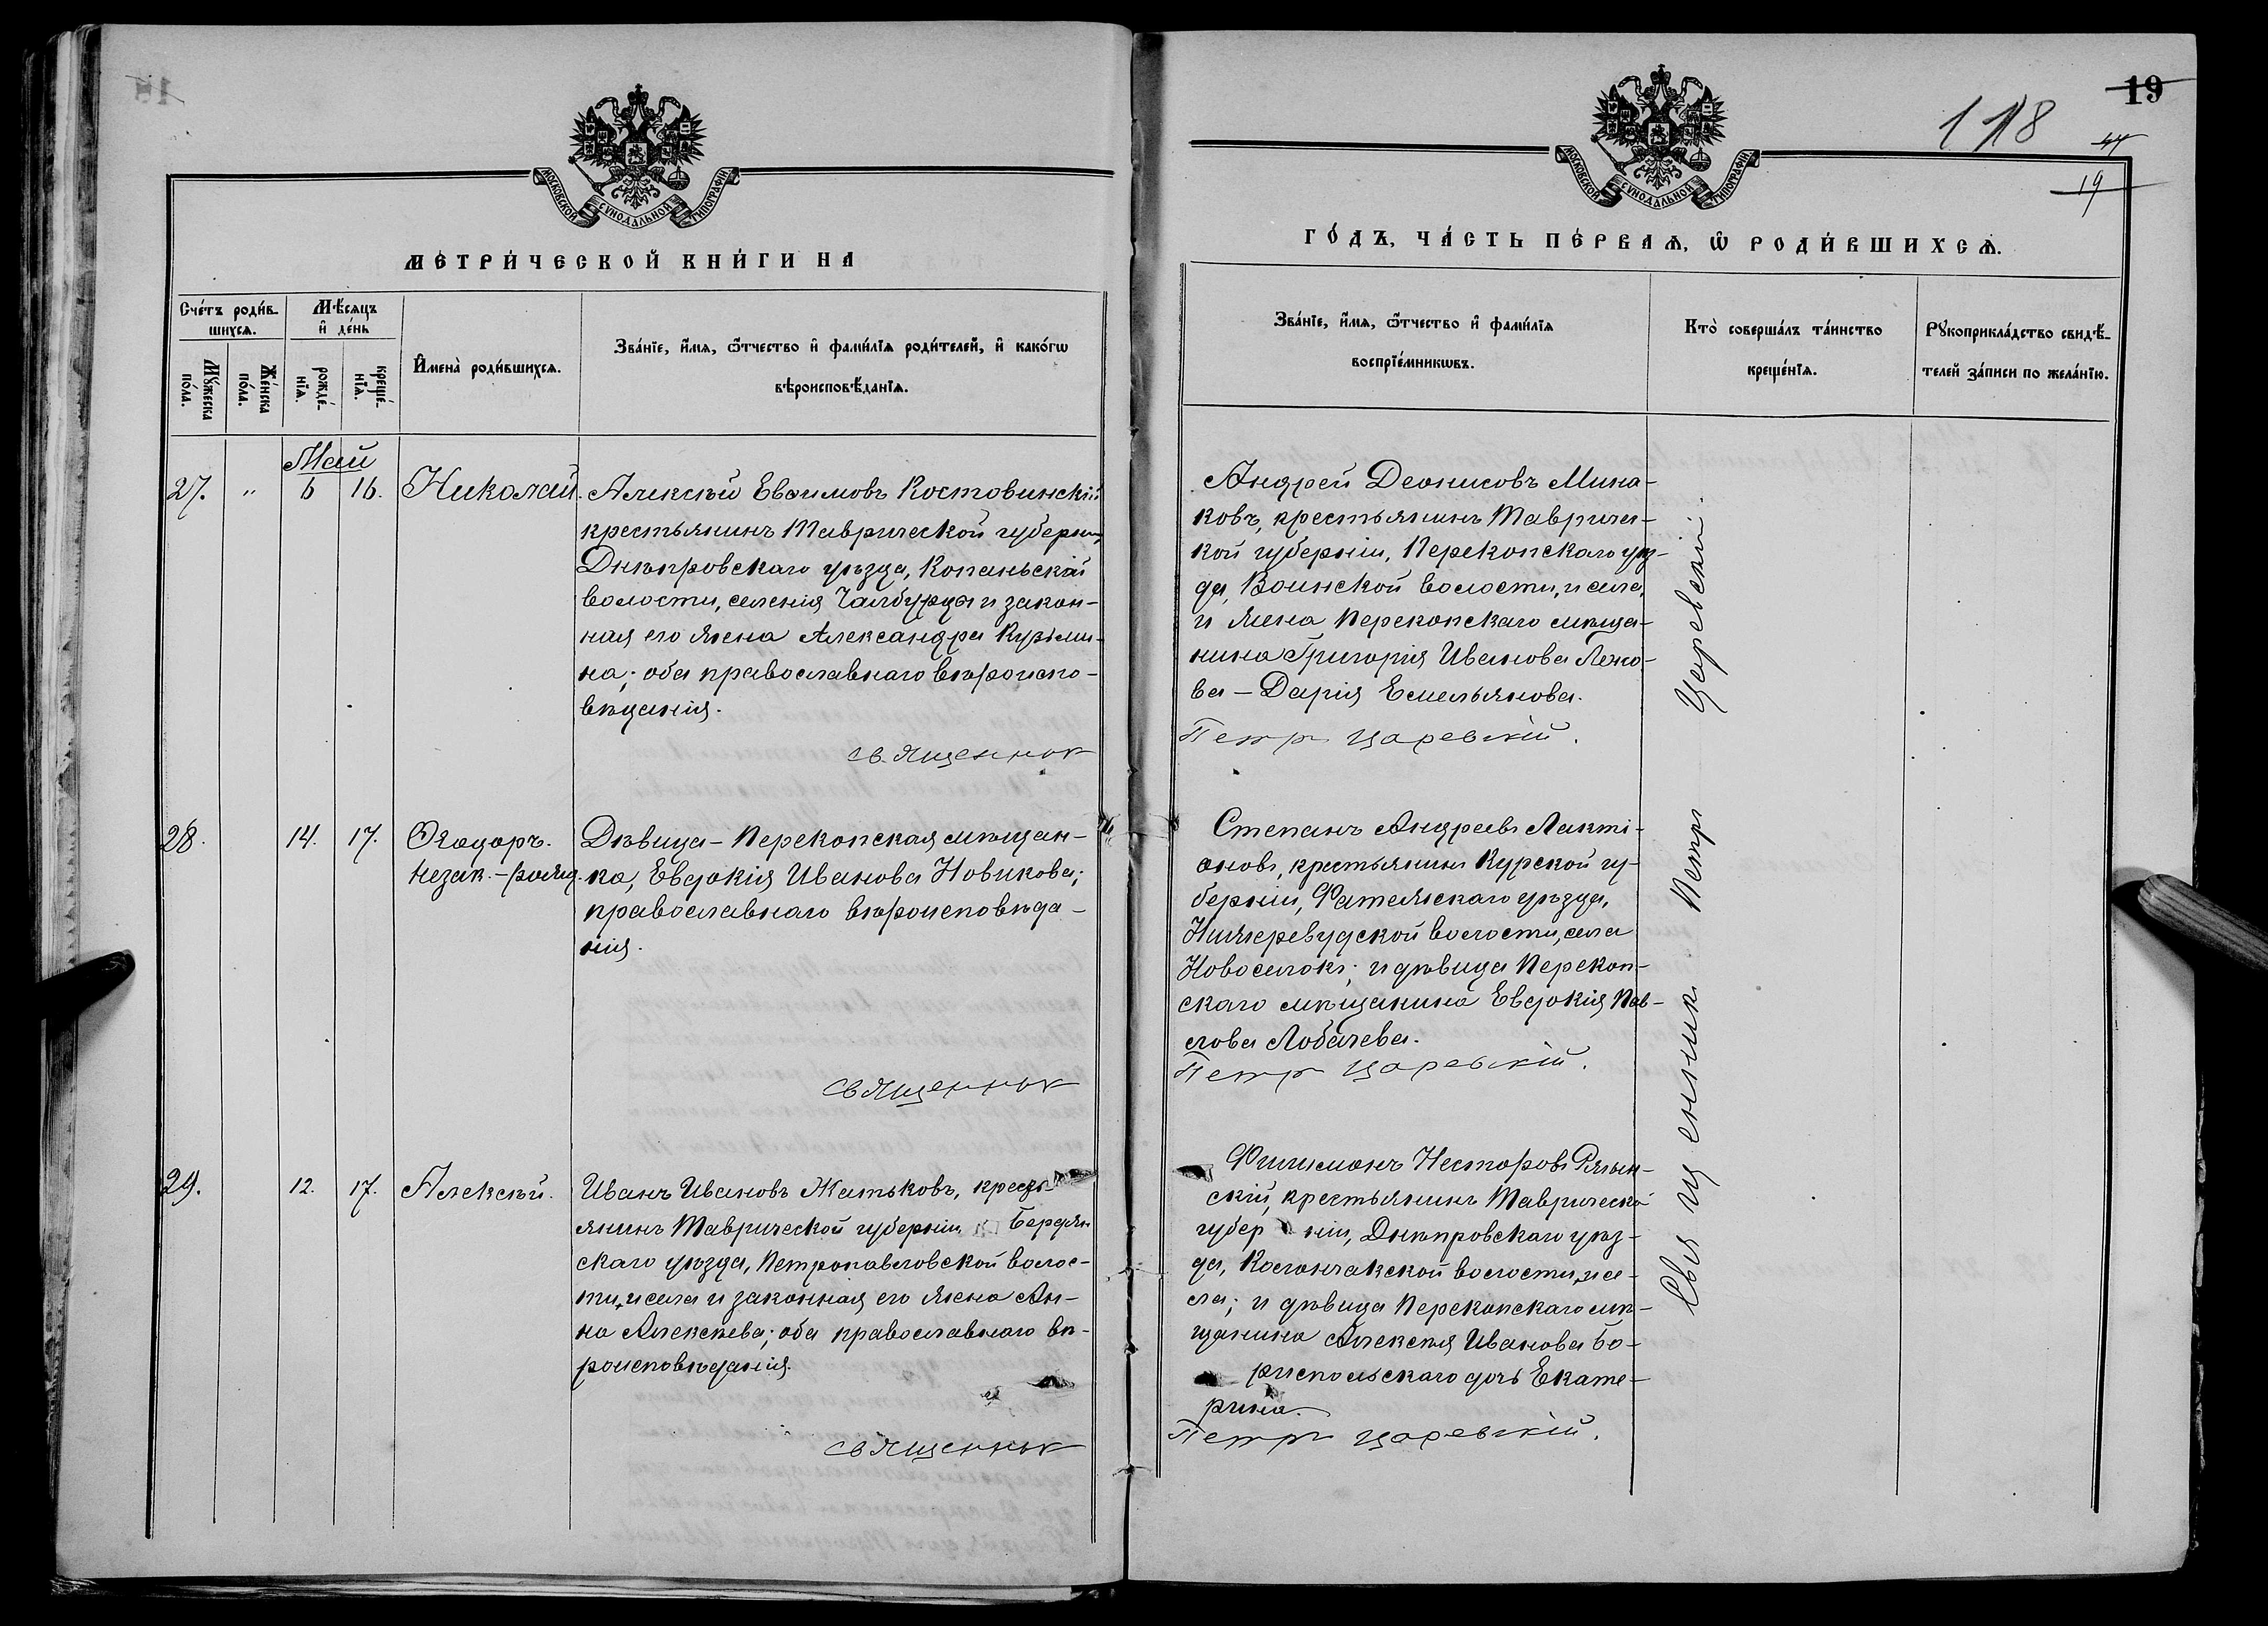 МОСКОВСКОЙ СѴНОДАЛЬНОЙ ТИПОГРАФІИ
МЕТРИ́ЧЕСКОЙ КНИ́ГИ НА
Сче́тъ роди́в-
шихсѧ.
Мѣ́сяцъ
и҆ де́нь
Мꙋ́жеска по́ла.
Же́нска по́ла.
рожде́-
нїѧ.
креще́-
нїѧ.
И҆мена̀ роди́вшихсѧ.
Зва́нїе, и҆́мѧ, ѻ҆́тчество и҆ фами́лїѧ роди́телей, и҆ како́гѡ
вѣроисповѣ́данїѧ.
Май
27. " 6 16. Николай. Алексѣй Евфимовъ Костовинскій
крестьянинъ Таврической губерніи,
Днѣпровскаго уѣзда, Копаньской
волости, селенія Чалбурда и закон-
ная его жена Александра Кузьми-
на; оба православнаго вѣроиспо-
вѣданія.
священник
28. 14. 17. Ѳеодоръ. Дѣвица - Перекопская мѣщан-
незак.-рожд. ка, Евдокія Иванова Новикова;
православнаго вѣроисповѣда-
нія.
священник
29. 12. 17. Алексѣй. Иванъ Ивановъ Жатьковъ, кресть-
янинъ Таврической губерніи, Бердян
скаго уѣзда, Петропавловской волос-
ти, и села и законная его жена Ан-
на Алексѣева; оба православнаго вѣ-
роисповѣданія.
священник
19
118
19
МОСКОВСКОЙ СѴНОДАЛЬНОЙ ТИПОГРАФІИ
ГО́ДЪ, ЧА́СТЬ ПЕ́РВАѦ, Ѡ҆ РОДИ́ВШИХСѦ.
Зва́нїе, и҆́мѧ, ѻ҆́тчество и҆ фами́лїѧ
воспрїе́мникѡвъ.
Кто̀ соверша́лъ та́инство
креще́нїѧ.
Рꙋкоприкла́дство свидѣ́-
телей за́писи по жела́нїю.
Андрей Деонисовъ Мина-
ковъ, крестьянинъ Тавричес-
кой губерніи, Перекопскаго уѣз-
да, Воинской волости, и села,
и жена Перекопскаго мѣща-
нина Григорія Иванова Лено-
ва - Дарія Емельянова.
Петр Царевскій.
Степанъ Андреевъ Лакті-
оновъ, крестьянинъ Курской гу-
берніи, Фатежскаго уѣзда,
Нижеревудской волости, села
Новоселокъ; и дѣвица Перекоп-
скаго мѣщанина Евдокія Пав-
лова Лобачева.
Петр Царевскій.
Филимонъ Несторовъ
скій, крестьянинъ Таврической
губер ніи, Днѣпровскаго уѣз-
да, Каланчакской волости, и се-
ла; и дѣвица Перекопскаго мѣ-
щанина Алексѣя Иванова Бо-
риспольскаго дочь Екате-
рина.
Петр Царевскій.
Священникъ Петръ Царевскій.